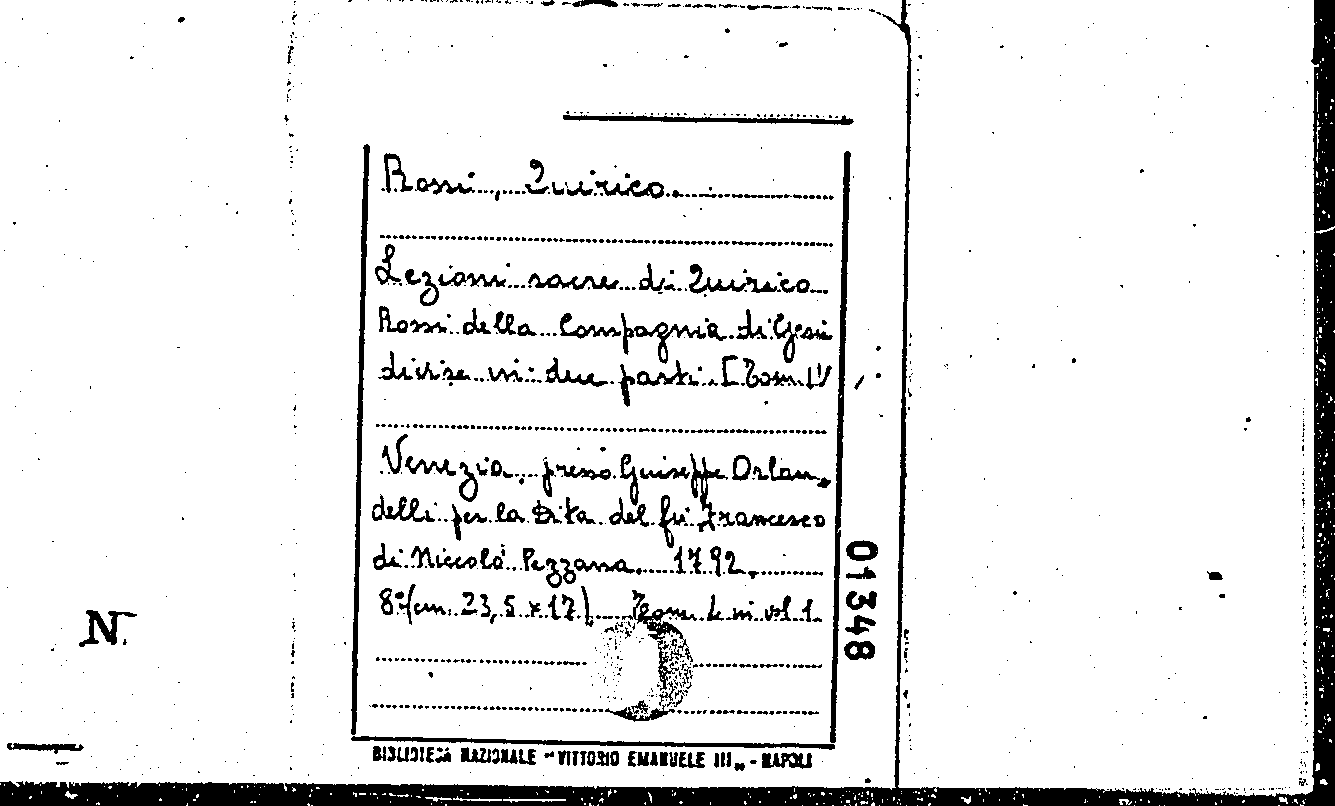 Rossi, Quirico.
Lezioni sacre di Quirico
Rossi della Compagnia di Gesù
divise in due parti. [Tom. I]
Venezia, presso Giuseppe Orlan-
delli per la Dita del fu Francesco
di Niccolò Pezzana. 1792.
8° (cm. 23,5 x 17) Tom. in vol 1.
01348
N.
BIBLIOTECA NAZIONALE "VITTORIO EMANUELE III" - NAPOLI